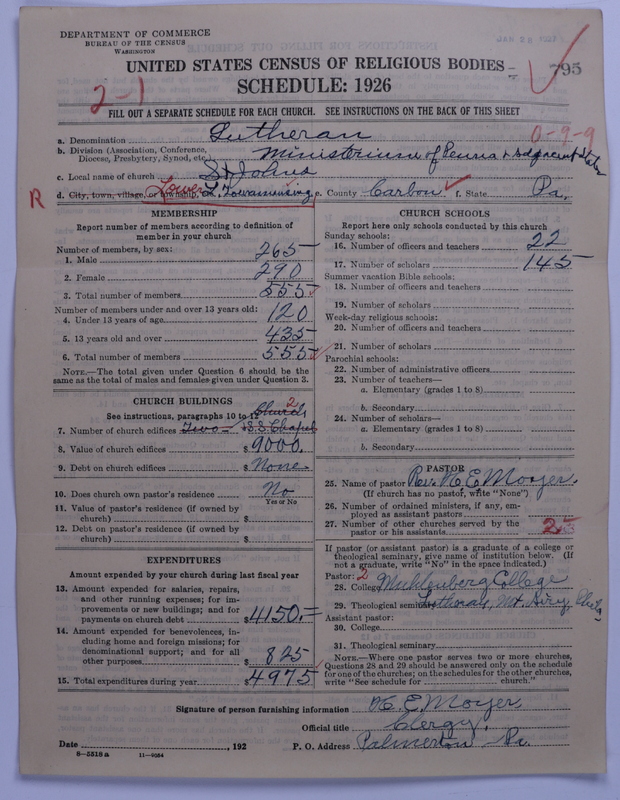 DEPARTMENT OF COMMERCE
BUREAU OF THE CENSUS
WASHINGTON
JAN 28 1927
UNITED STATES CENSUS OF RELIGIOUS BODIES
795
SCHEDULE: 1926
2-1
FILL OUT A SEPARATE SCHEDULE FOR EACH CHURCH. SEE INSTRUCTIONS ON THE BACK OF THIS SHEET
a. Denomination Lutheran
0-9-9
b. Division (Association, Conference, Diocese, Presbytery, Synod, etc.) Ministerium of Penna & Adjacent States
c. Local name of church St Johns
R
d. City, town, village, or township, Lower L. Towamensing e. County Carbon f. State Pa.
MEMBERSHIP
Report number of members according to definition of
member in your church
Number of members, by sex:
1. Male 265
2. Female 290
3. Total number of members 555
Number of members under and over 13 years old:
4. Under 13 years of age 120
5. 13 years old and over 435
6. Total number of members 555
NOTE.—The total given under Question 6 should be the
same as the total of males and females given under Question 3.
CHURCH BUILDINGS
See instructions, paragraphs 10 to 12
Church 2
7. Number of church edifices Two & S.S. Chapel
8. Value of church edifices $ 9000.
9. Debt on church edifices $ None
10. Does church own pastor's residence No
Yes or No
11. Value of pastor's residence (if owned by
church) $
12. Debt on pastor's residence (if owned by
church) $
EXPENDITURES
Amount expended by your church during last fiscal year
13. Amount expended for salaries, repairs,
and other running expenses; for im-
provements or new buildings; and for
payments on church debt $ 4150.
14. Amount expended for benevolences, in-
cluding home and foreign missions; for
denominational support; and for all
other purposes $ 825
15. Total expenditures during year $ 4975
CHURCH SCHOOLS
Report here only schools conducted by this church
Sunday schools:
16. Number of officers and teachers 22
17. Number of scholars 145
Summer vacation Bible schools:
18. Number of officers and teachers
19. Number of scholars
Week-day religious schools:
20. Number of officers and teachers
21. Number of scholars
Parochial schools:
22. Number of administrative officers
23. Number of teachers—
a. Elementary (grades 1 to 8)
b. Secondary
24. Number of scholars—
a. Elementary (grades 1 to 8)
b. Secondary
PASTOR
25. Name of pastor Rev. N. E. Moyer.
(If church has no pastor, write "None")
26. Number of ordained ministers, if any, em-
ployed as assistant pastors
27. Number of other churches served by the
pastor or his assistants
If pastor (or assistant pastor) is a graduate of a college or
theological seminary, give name of institution below. (If
not a graduate, write "No" in the space indicated.)
Pastor: 2
28. College Muhlenberg College
29. Theological seminary Lutheran, Mt. Airy, Phila
Assistant pastor:
30. College
31. Theological seminary
NOTE.—Where one pastor serves two or more churches,
Questions 28 and 29 should be answered only on the schedule
for one of the churches; on the schedules for the other churches,
write "See schedule for church."
Signature of person furnishing information N. E. Moyer
Official title Clergy.
Date , 192
P. O. Address Palmerton Pa.
8-5518 a 11-9564